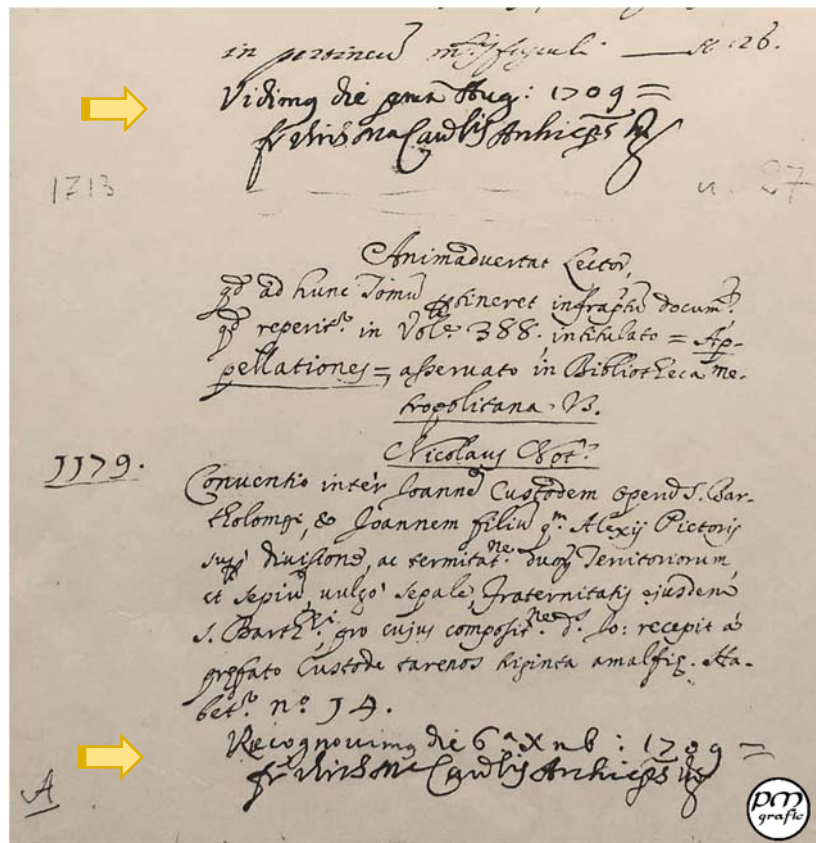 in pertineñ
n: 26.
Vidimus die pma Aug: 1709 =
fr Vinc Ma Card lis Archieps
1713
n. 27
Animaduertat Lector,
qd ad hunc Tomũ ptineret infraptũ docum.
qd reperit.r in Vol.e 388. intitulato = Ap-
pellationes =, asseruato in Bibliotheca me-
tropolitana. B.
Nicolaus Not.s
1179.
Conventio inter Joanne Custodem S. Bar-
tholomei, & Joannem filiũ q.m Alexij Pictoris
divisione, ac termitat.ne duoȝ Territoriorum
et sepiũ, uulgò sepale, Fraternitatis ejusdem
S. Barth.ei, pro cujus composit.ne d.s Jo: recepit à
prefato Custode tarenos triginta amalfie. Ha-
bet.r n.o 14.
Recognouimus die 6.a Xnb: 1709 =
fr Vinc Ma Card lis Archieps
A
pm
grafic